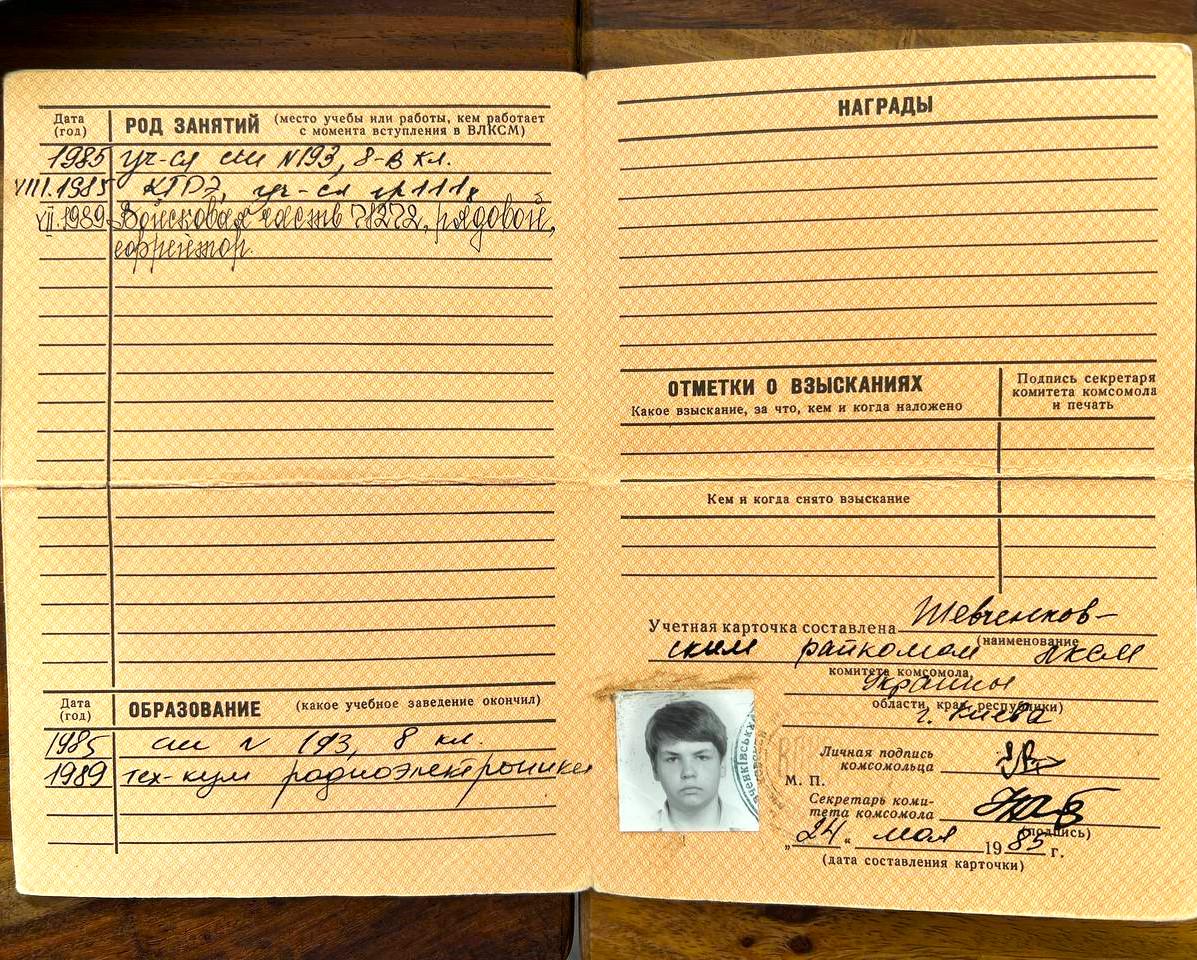 Дата
(год)
РОД ЗАНЯТИЙ (место учебы или работы, кем работает
с момента вступления в ВЛКСМ)
1985 уч-ся сш N193, 8-в кл.
VIII.1985 КТРЭ, уч-ся гр 111
VII.1989 Войсковая часть 78272, рядовой,
ефрейтор.
Дата
(год)
ОБРАЗОВАНИЕ (какое учебное заведение окончил)
1985 сш N 193, 8 кл.
1989 тех-кум радиоэлектроники
НАГРАДЫ
ОТМЕТКИ О ВЗЫСКАНИЯХ
Какое взыскание, за что, кем и когда наложено
Подпись секретаря
комитета комсомола
и печать
Кем и когда снято взыскание
Учетная карточка составлена Шевченков-
(наименование
ским райкомом ЛКСМ
комитета комсомола,
Украины
области, края, республики)
г. Киева
Личная подпись
комсомольца
М. П.
Секретарь коми-
тета комсомола
(подпись)
„24“ мая 1985 г.
(дата составления карточки)